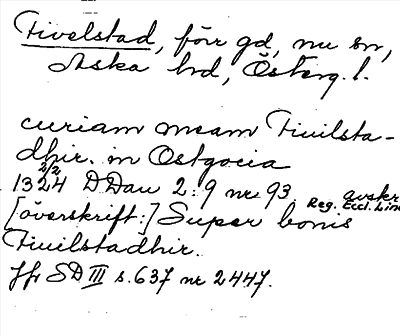 Fivelstad, förr gd, nu sn,
Aska hd, Österg. l.
curiam meam Fiuilsta-
dhir. in Ostgocia
1324 2/2 DDan 2:9 nr 93. avskr.
Reg. Eccl. Linc
[överskrift:] Super bonis
Fiuilstadhir.
Jfr SD III s. 637 nr 2447.